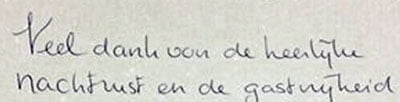 Veel dank voor de heerlijke
nachtrust en de gastvrijheid